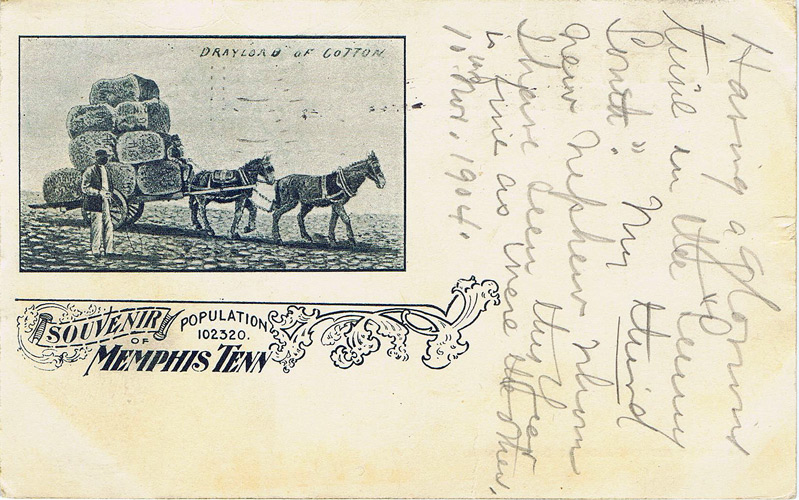 DRAYLOAD OF COTTON
SOUVENIR
OF
MEMPHIS TENN
POPULATION
102320.
Having a glorious
time in the "Sunny
South" My third
new nephew whom
I have seen this year
is fine as were the other.
10. Nov. 1904.